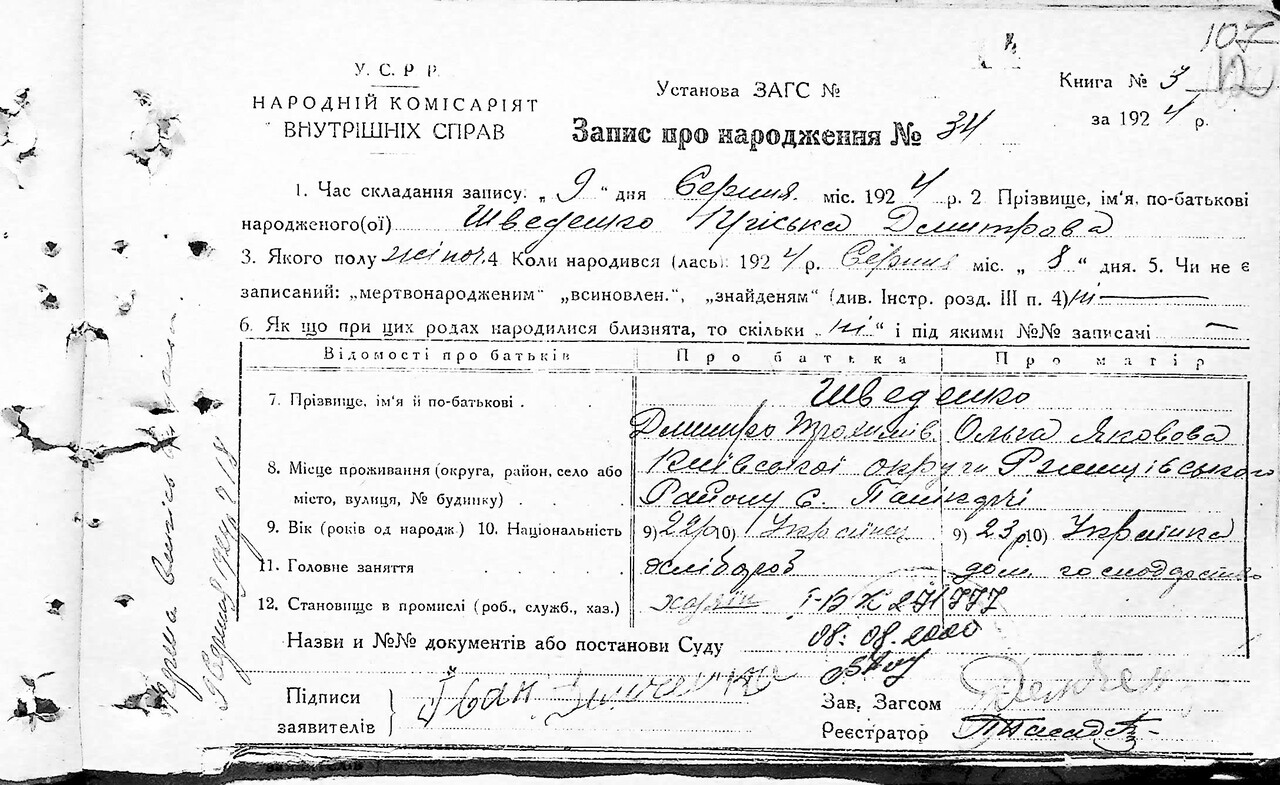 107
12
У. С. Р. Р.
НАРОДНІЙ КОМІСАРІЯТ
ВНУТРІШНІХ СПРАВ
Установа ЗАГС №
Книга № 3
за 1924 р.
Запис про народження № 34
1. Час складання запису: „ 9 “ дня Серпня міс. 1924 р. 2 Прізвище, ім'я, по-батькові
народженого(ої) Шведешко Дмитрова
3. Якого полу жіноч. 4 Коли народився (лась): 1924 р. Серпня міс. „ 8 “ дня. 5. Чи не є
записаний: „мертвонародженим“ „всиновлен.“, „знайденям“ (див. Інстр. розд. III п. 4) ні
6. Як що при цих родах народилися близнята, то скільки „ ні “ і під якими №№ записані —
Відомості про батьків Про батька Про матір
7. Прізвище, ім'я й по-батькові . . . Шведешко
Дмитро Ольга Яковова
8. Місце проживання (округа, район, село або
місто, вулиця, № будинку) . . . .
Київської округи Ржищівського
Району с.
9. Вік (років од народж.) 10. Національність 9) 22р 10) Українец 9) 23р 10) Українка
11. Головне заняття . . . . . хлібороб дом. господарство
12. Становище в промислі (роб., служб., хаз.) хазяїн І-ВК 271777
Назви и №№ документів або постанови Суду 08.08.2000
Підписи
заявителів
Іван
Зав. Загсом
Реєстратор